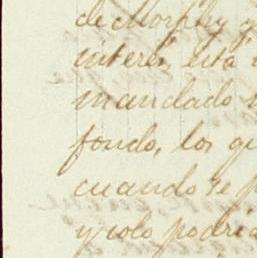 de Morphy y
interés, está
mandado
fondo, los qu
cuando se p
y solo podrá